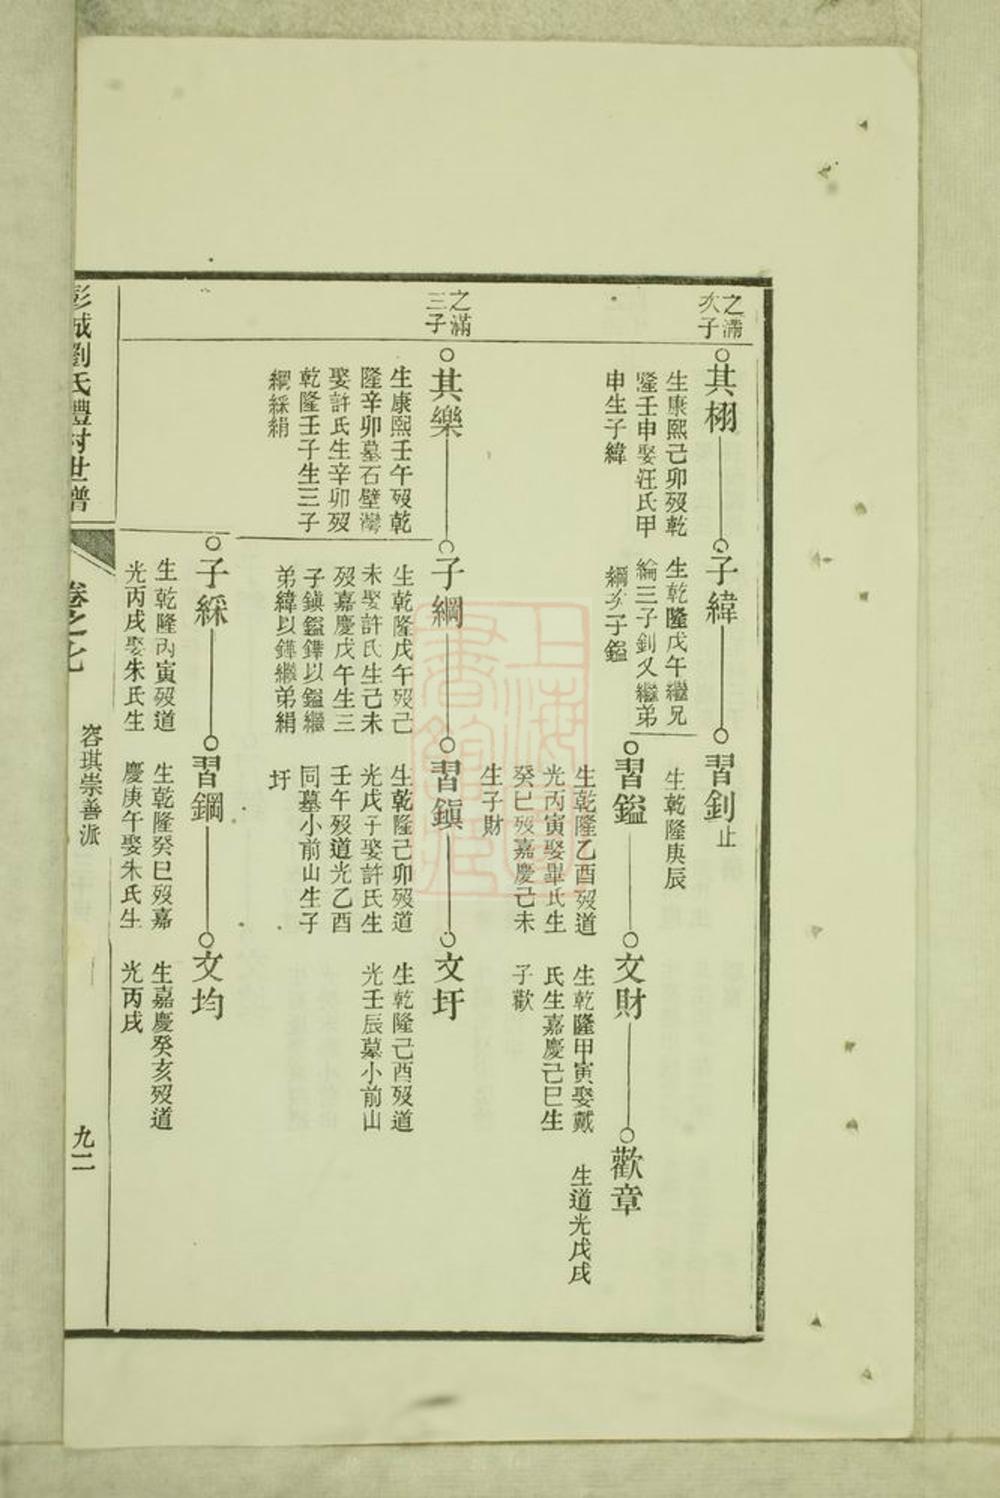 之滿
次子
其栩
生康熙己卯歿乾
隆壬申娶汪氏甲
申生子緯
子緯
生乾隆戊午繼兄
綸三子釗又繼弟
綱次子鎰
習釗止
生乾隆庚辰
習鎰
生乾隆乙酉歿道
光丙寅娶畢氏生
癸巳歿嘉慶己未
生子財
文財
生乾隆甲寅娶戴
氏生嘉慶己巳生
子歡
歡章
生道光戊戌
之滿
三子
其樂
生康熙壬午歿乾
隆辛卯墓石壁灣
娶許氏生辛卯歿
乾隆壬子生三子
綱綵絹
子綱
生乾隆戊午歿己
未娶許氏生己未
歿嘉慶戊午生三
子鎮鎰鏵以鎰繼
弟緯以鏵繼弟絹
習鎮
生乾隆己卯歿道
光戊子娶許氏生
壬午歿道光乙酉
同墓小前山生子
圩
文圩
生乾隆己酉歿道
光壬辰墓小前山
子綵
生乾隆丙寅歿道
光丙戌娶朱氏生
習鋼
生乾隆癸巳歿嘉
慶庚午娶朱氏生
文均
生嘉慶癸亥歿道
光丙戌
彭城劉氏豐村世譜
卷之七
容琪崇善派
九二